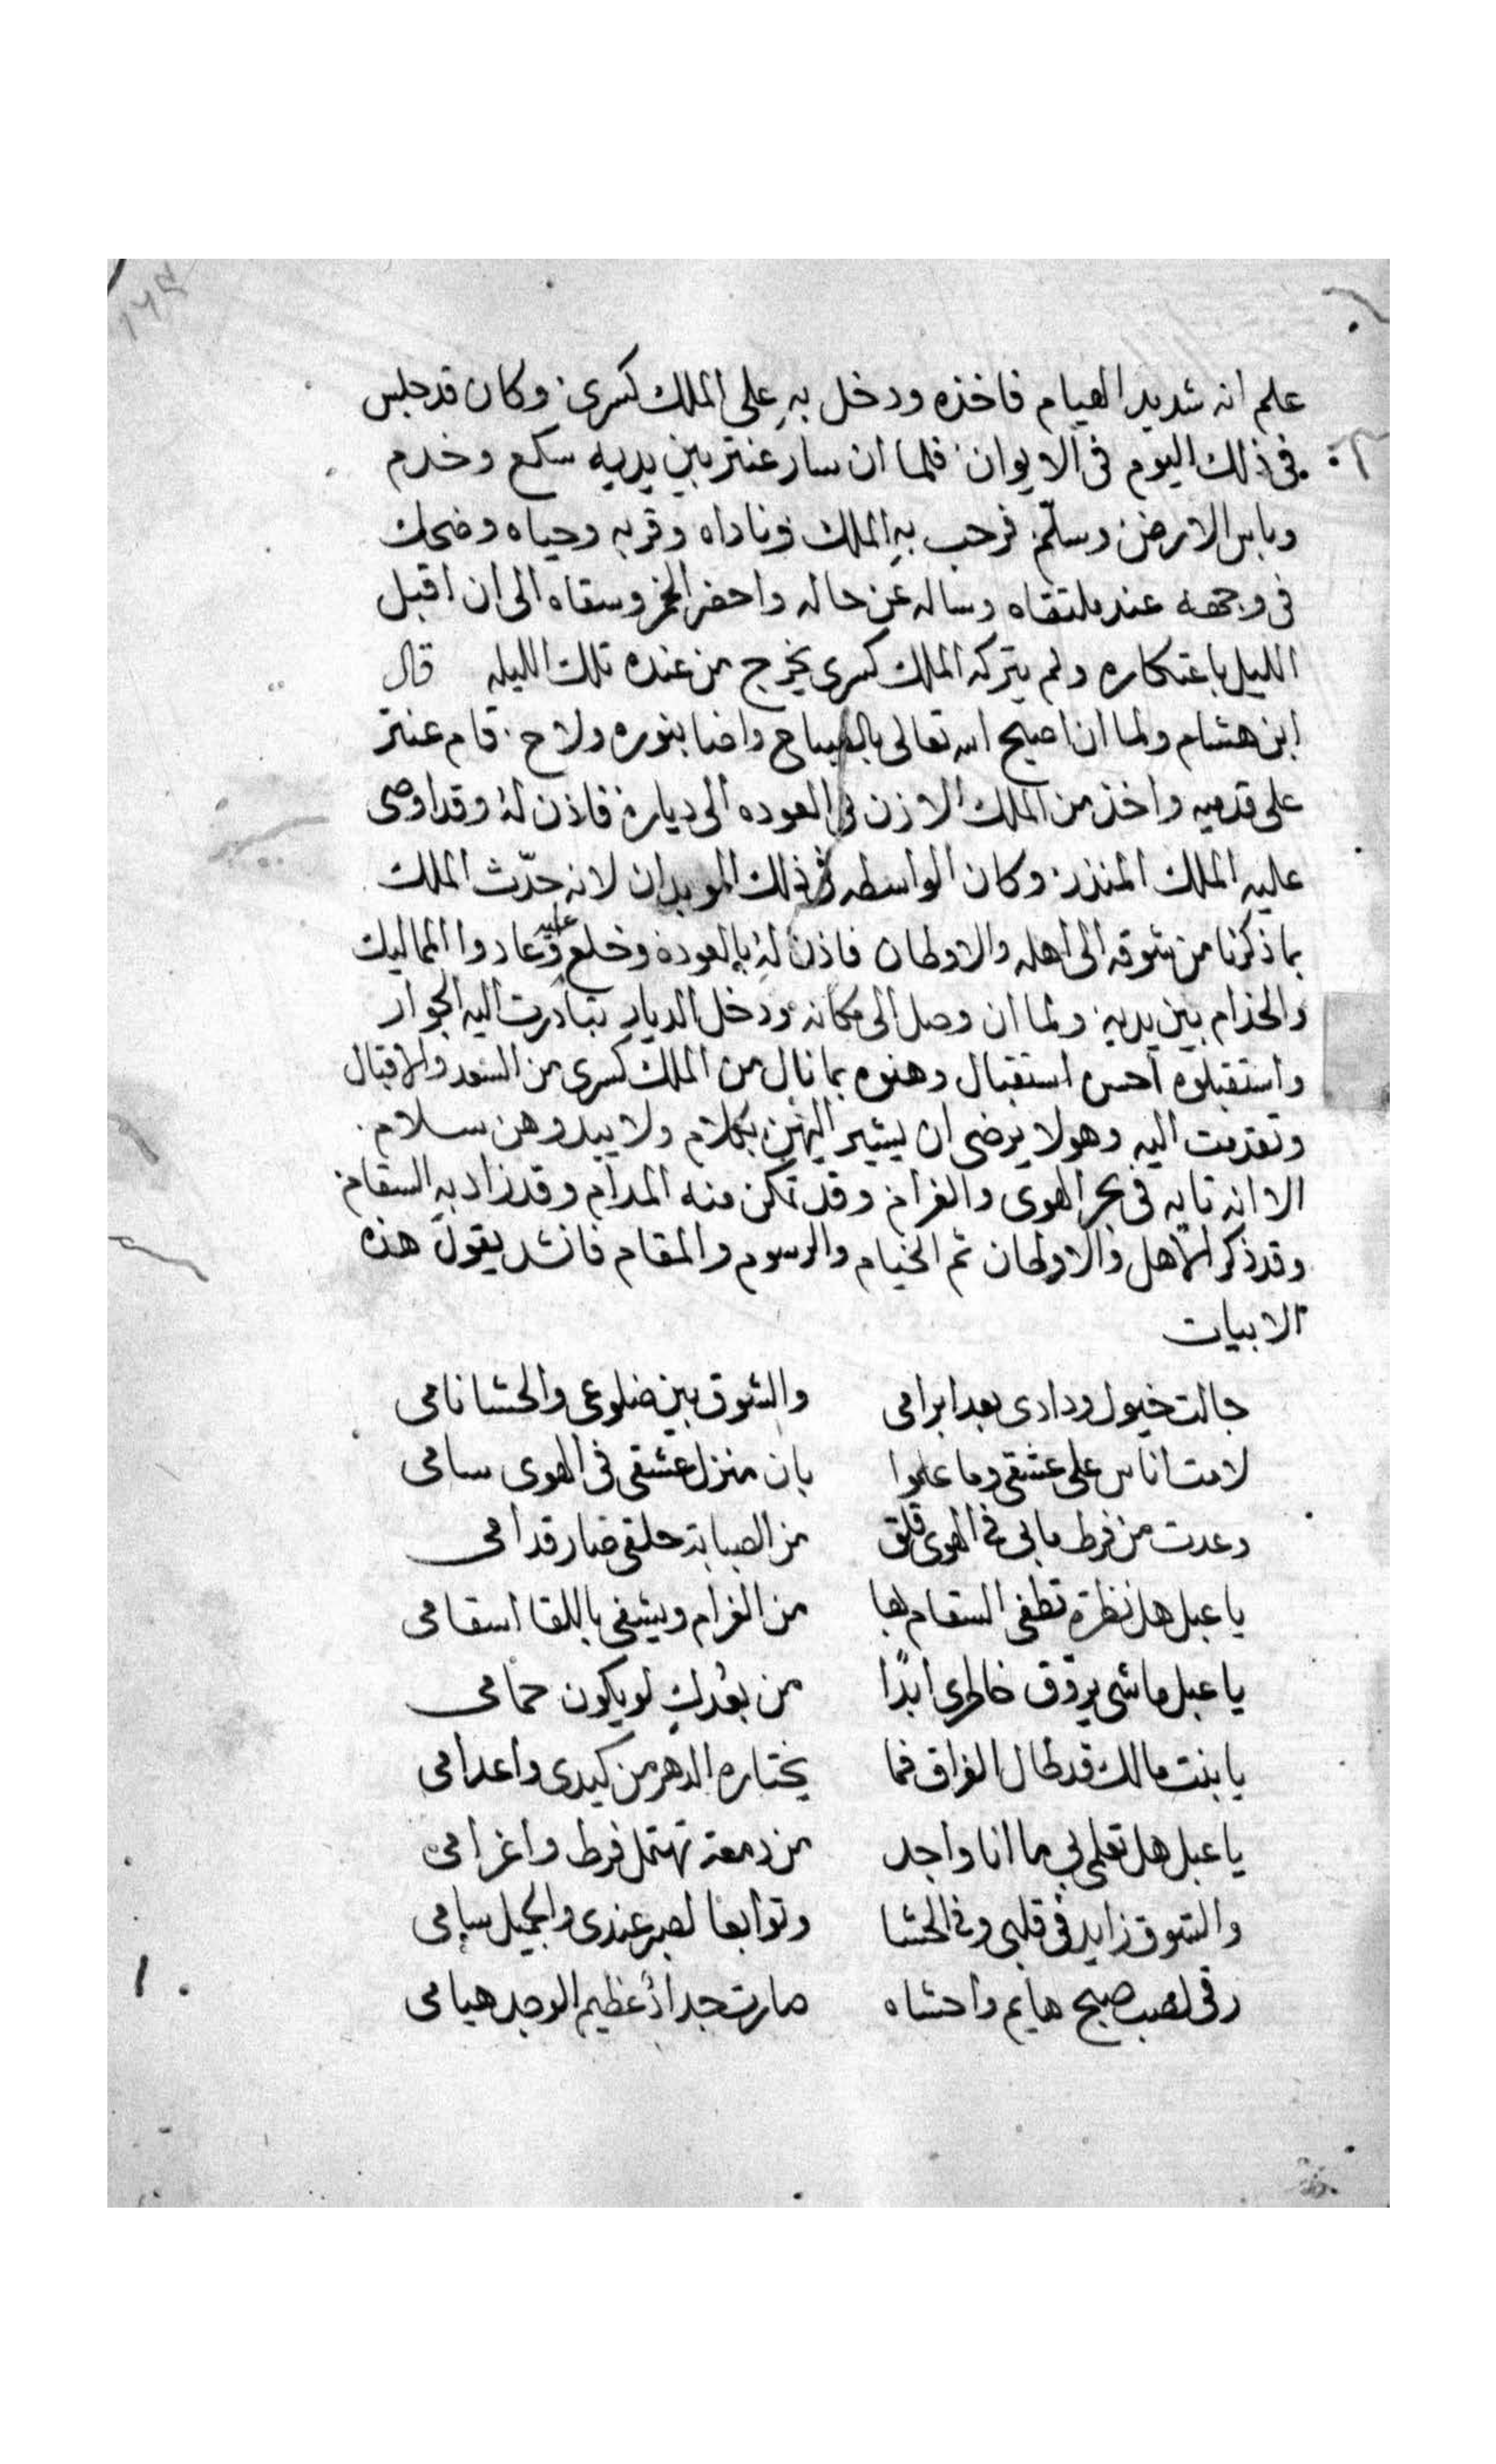 علم انه شديد الهيام فاخذه ودخل به على الملك كسرى وكان قد جلس
فى ذلك اليوم فى الايوان فلما ان سار عنتر بين يديه سكع وخدم
وباس الارض وسلّم فرحب به الملك وناداه وقربه وحياه وضحك
فى وجهه عند ملتقاه وساله عن حاله واحضر الخمر وسقاه الى ان اقبل
الليل باعتكاره ولم يتركه الملك كسرى يخرج من عنده تلك الليله قال
ابن هشام ولما ان اصبح الله تعالى بالصباح واضا بنوره ولاح قام عنتر
على قدميه واخذ من الملك الازن فى العوده الى دياره فاذن له وقد اوصى
عليه الملك المنذر وكان الواسطه فى ذلك الموبدان لانه حدّث الملك
بما ذكرنا من شوقه الى اهله والاوطان فاذن له بالعوده وخلع عليه وعادوا المماليك
والخدام بين يديه ولما ان وصل الى مكانه ودخل الديار تبادرت اليه الجوار
واستقبلوه احسن استقبال وهنوه بما نال من الملك كسرى من السعد والاقبال
وتقدمت اليه وهو لا يرضى ان يشير اليهن بكلام ولا يبدوهن سلام
الا انه تايه فى بحر الهوى والغرام وقد تمكن منه المدام وقد زاد به السقام
وقد ذكر الاهل والاوطان ثم الخيام والرسوم والمقام فانشد يقول هذه
الابيات
جالت خيول ودادى بعد ابرامى والشوق بين ضلوعى والحشا نامى
لامت اناس على عشقى وما علموا بان منزل عشقى فى الهوى سامى
وعدت من فرط مابى فى الهوى قلق من الصبابة خلفى صار قدامى
يا عبل هل نظرة تطفى السقام بها من الغرام ويشفى باللقا اسقامى
يا عبل ما شى يروّق خاطرى ابدًا من بعُدكِ لو يكون حمامى
يا بنت مالك قد طال الفراق فما يختاره الدهر من كيدى واعدامى
يا عبل هل تعلمى بى ما انا واجد من دمعة تهتمل فرط واغرامى
والشوق زايد فى قلبى وفى الحشا وتوابعا لصبر عندى والجميل سامى
رقى لصب صبح هايم واحشاه صارت جداد عظيم الوجد هيامى